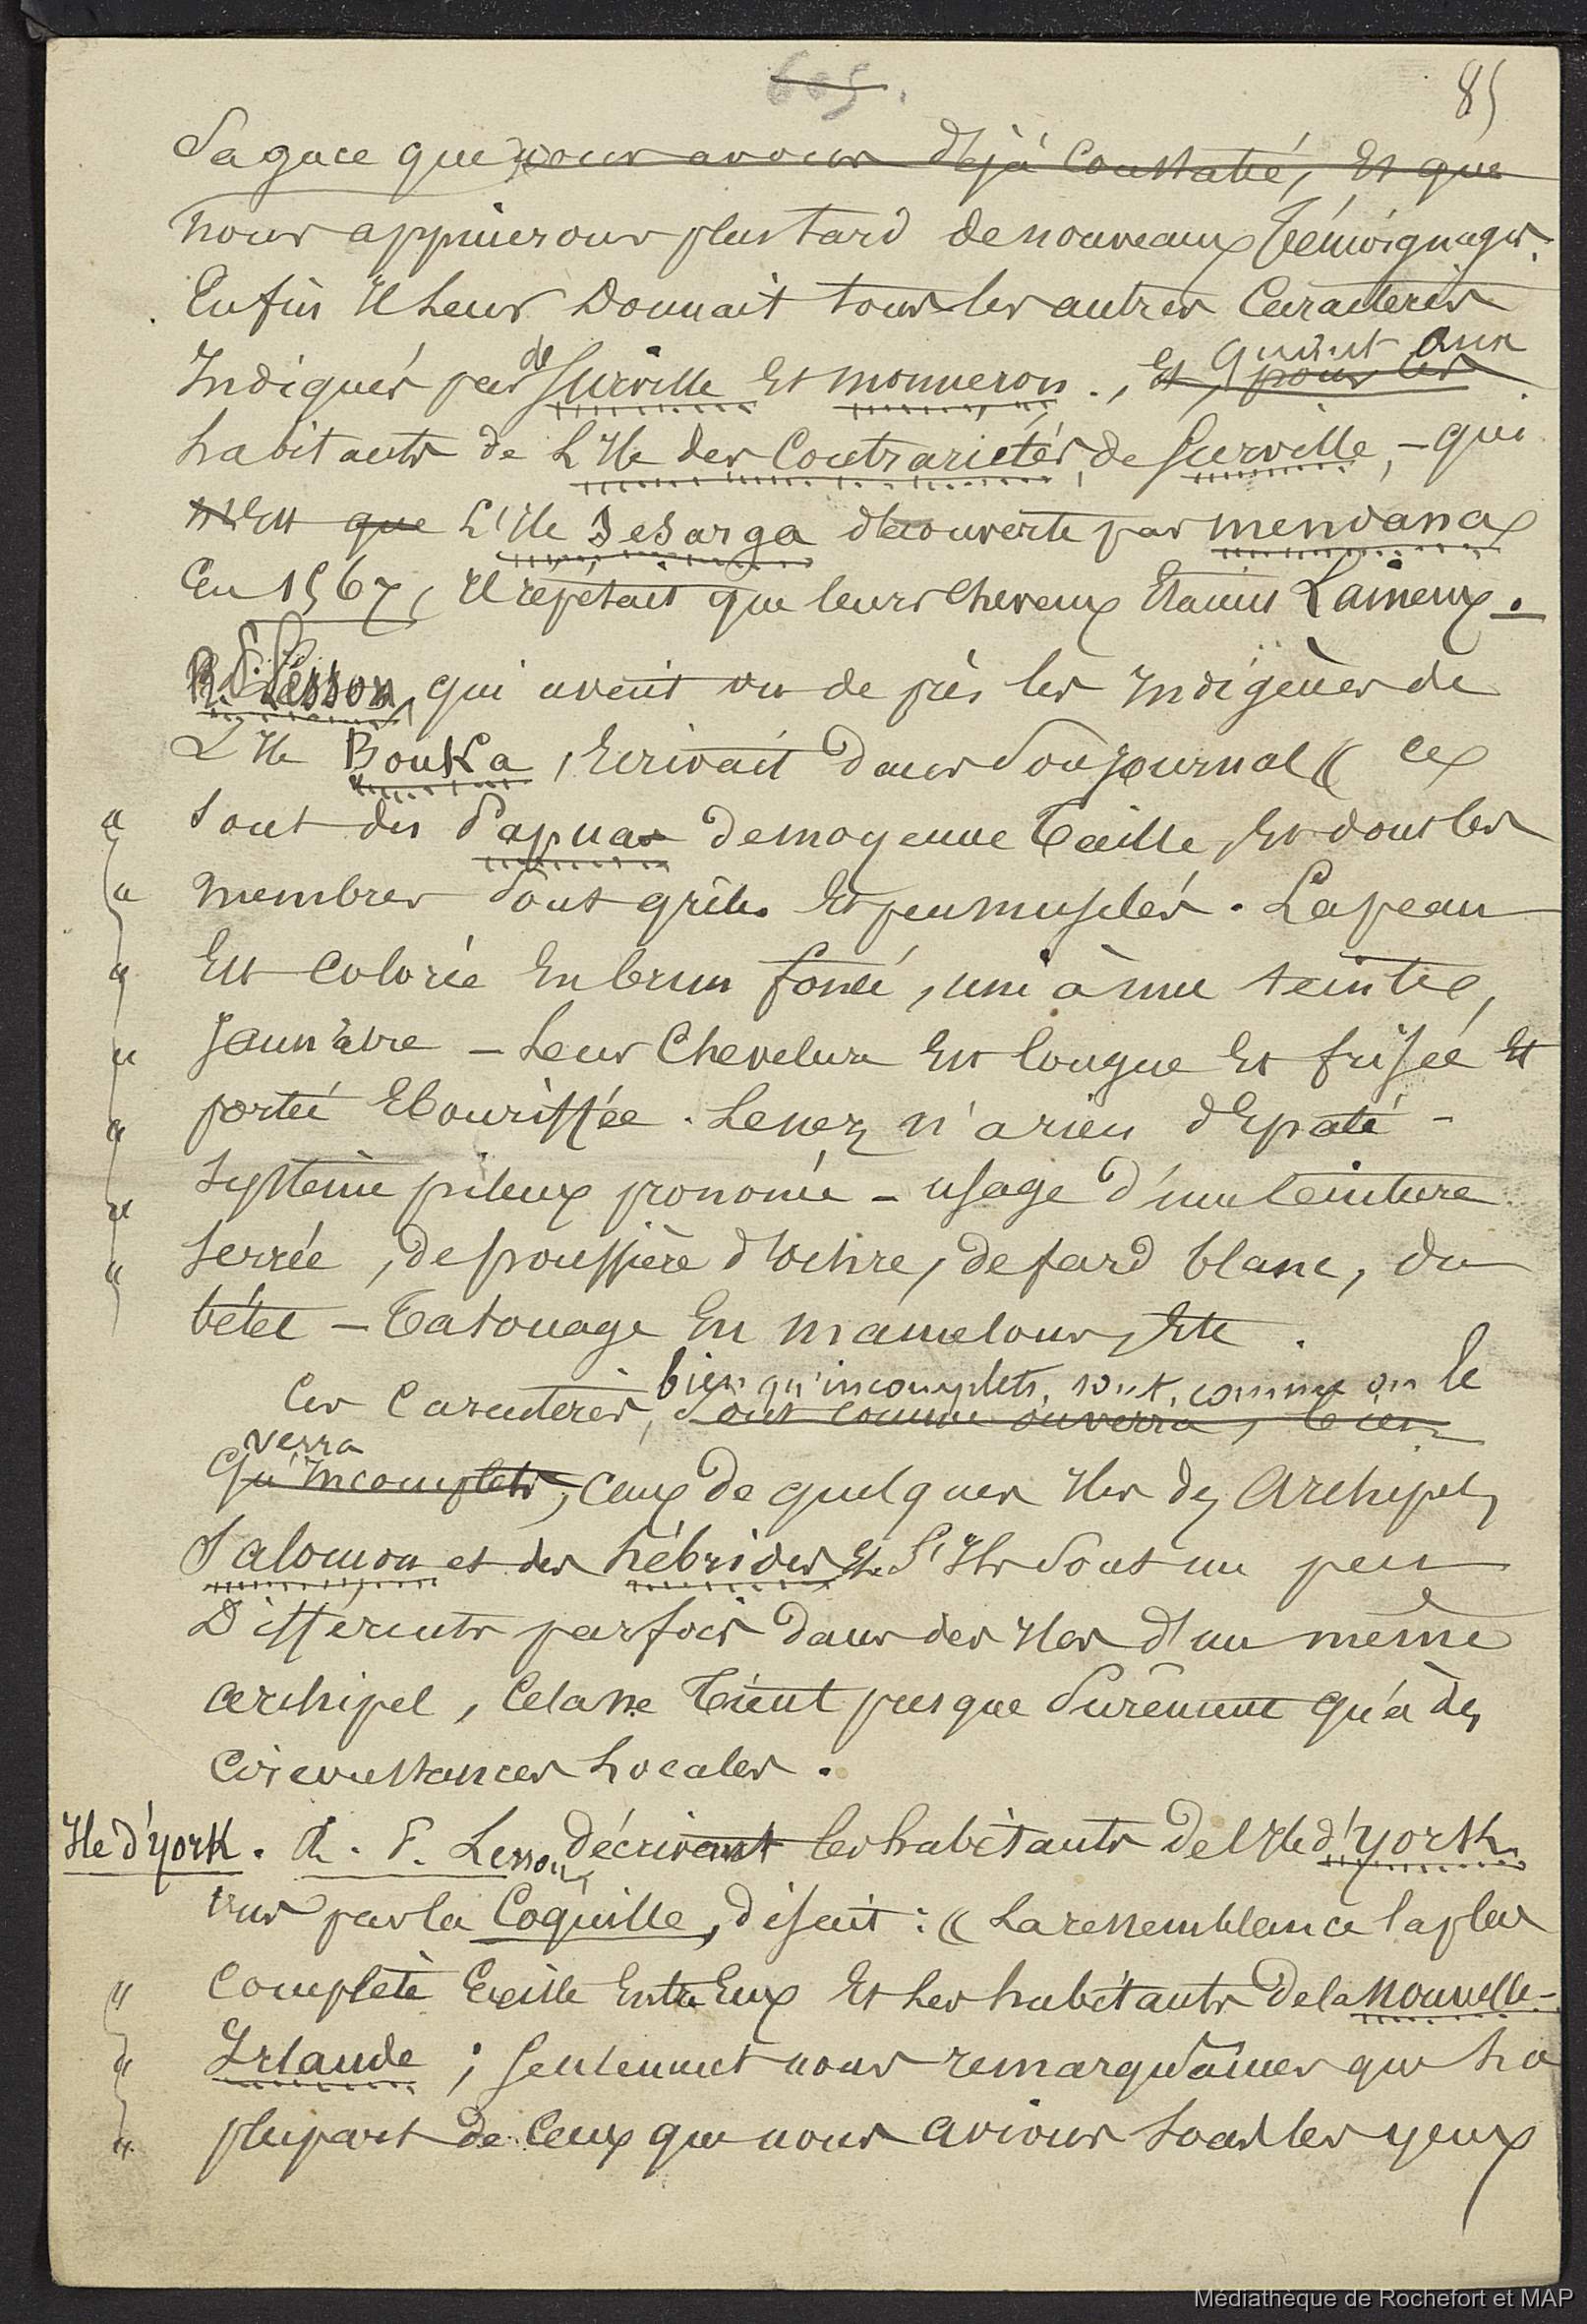 605.
85
Sagace que nous avons déjà constaté, et que
nous appuierons plus tard de nouveaux témoignages.
Enfin il leur donnait tous les autres caractères
Indiqués par de Surville et monneron ., et pour les quant aux
habitants de L'Ile des Contrariétés, de Surville, - qui
n'est que L'ile Sesarga découverte par mendana
En 1567, Il répétait que leurs cheveux étaient Laineux.
R. P. Lesson, qui avait vu de près les Indigènes de
L'Ile Bouka, Ecrivait dans son journal « ce
" sont des Papuas de moyenne taille, et dont les
" membres sont grèles et peu musclés. La peau
" Est colorée en brun foncé, uni à une teinte,
" Jaunâtre - Leur chevelure est longue et frisée et
" portée Ebouriffée. Le nez n'a rien d'Epaté -
" système pileux prononcé - usage d'une ceinture
" serrée, de poussière d'ochre, de fard blanc, du
bétel - tatouage en mamelons, Etc.
bien qu'incomplets, sont, comme on le
Ces caractères, sont comme on verra, bien
verra
qu'Incomplets, ceux de quelques Iles des Archipels
Salomon et des hébrides Etc. S'Ils sont un peu
Différents parfois dans des Iles d'un même
archipel, cela ne tient presque surement qu'à des
circonstances locales.
Ile d'york. R. P. Lesson, décrivant les habitants de l'Ile d'york
vus par la Coquille, disait : « La ressemblance la plus
" complète Existe Entre Eux et les habitants de la nouvelle-
" Irlande ; seulement nous remarquâmes que la
" plupart de ceux que nous avions sous les yeux
Médiathèque de Rochefort et MAP